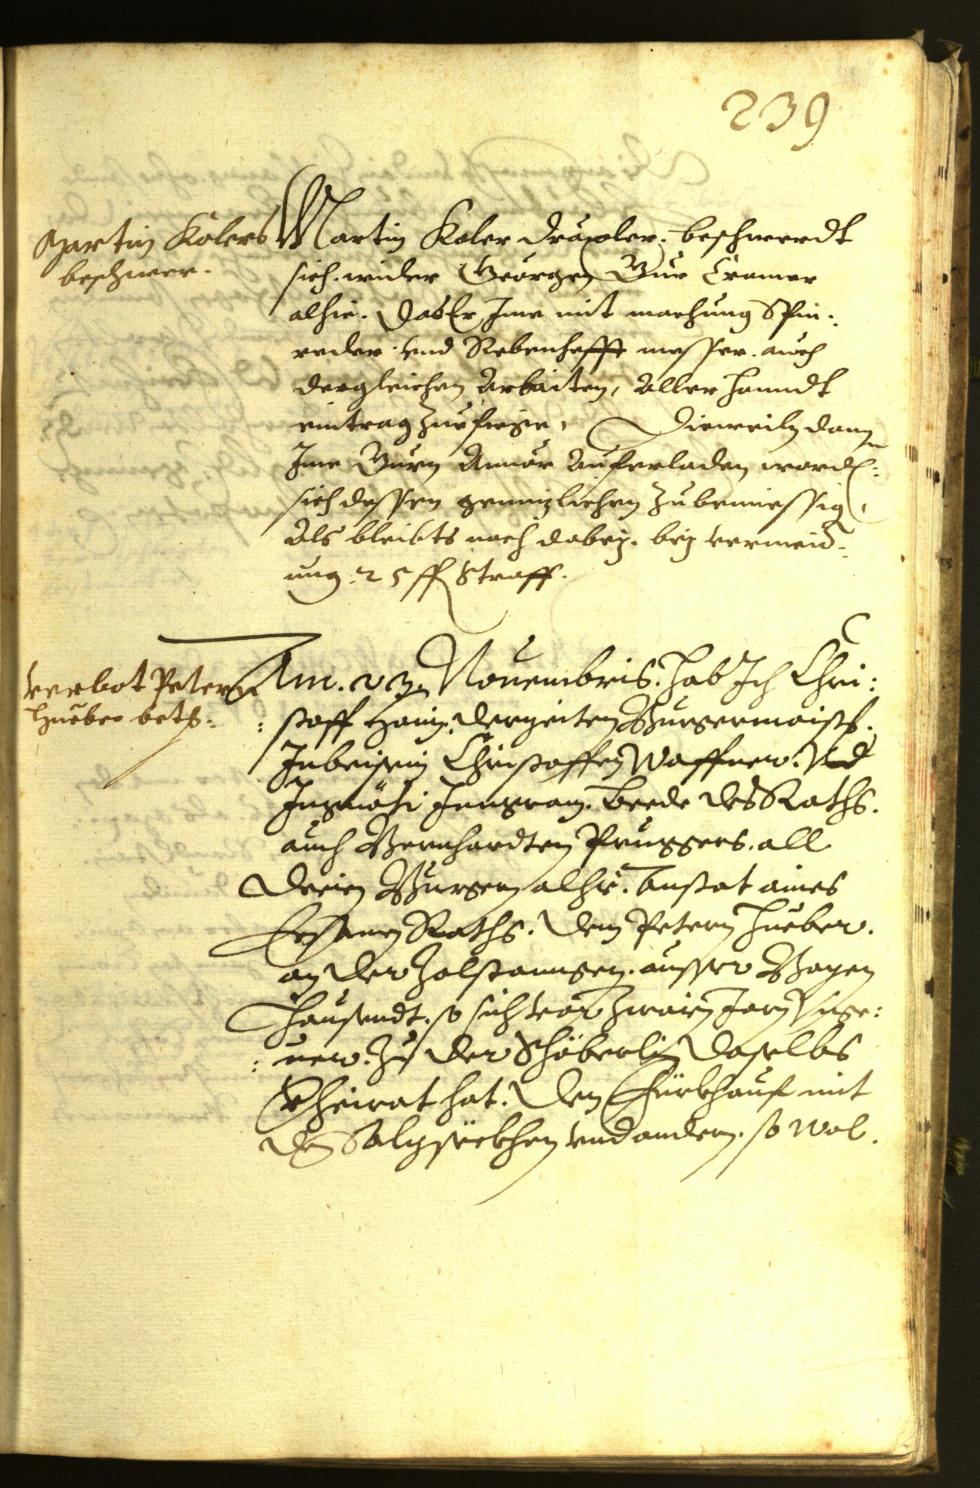 239
Martin Kolers
beschwer.
Martin Koler Dräxler. beschwerdt
sich wider Georgen Bur Cramer
alhie. Das Er Ime mit machung Spin:
reder. vnd Rebenhefft messer. auch
dergleichen Arbaiten, Aller handt
eintrag zuefiege, Dieweil dann
Ime Burn Auferladen word:
sich dessen genntzlichen zubemiessig,
Als bleibts nach dabey. bey vermeid:
ung. 25 fl Straff.
Verbot Petern
Hueber betr:
Am. 23. Nouembris. hab Ich Chri:
:stoff Hain. derzeiten Burgermaister.
Inbeysein Christoffen Waffner. Vnd
Ingram. beede des Raths.
auch Bernhardten Pruggers. all
dreien Burgern alhie. Anstat aines
Ersamen Raths. dem Petern Hueber.
an der Zolstanngen. ausser Bozen
hausendt. so sich vor zwaien Jarn
:uer. Zu der Schöberlin daselbs
Eheirat hat. den Fürkhauf mit
den vnd andern. so wol.